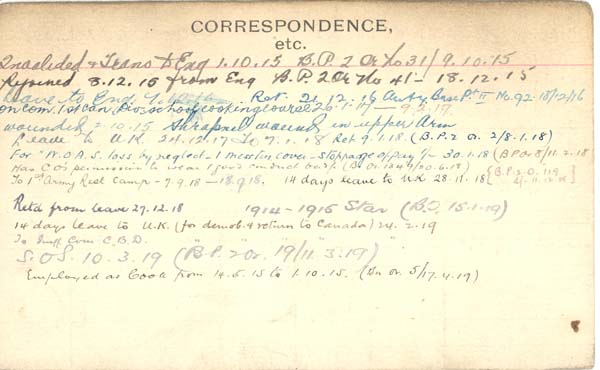 CORRESPONDENCE,
etc.
Invalided & Trans to Eng 1.10.15 B.P. 2 Or No 31/9.10.15
Rejoined 8.12.15 from Eng B.P. 2 Or No 41 - 18.12.15
Leave to Eng Ret. 21.12.16 Auty Bn P. II No. 92 - 18/12/16
on com. 1st Can. Div. School of cooking course 26.1.17 - 9.2.17
wounded 2.10.15 Shrapnel wound in upper Arm
Leave to U.K. 24.12.17 To 7.1.18 Ret 9.1.18 (B.P. 2 Or. 2/8.1.18)
For "W.O.A.S. loss by neglect - 1 mess tin cover - stoppage of pay 30.1.18 (BP Or 8/11.2.18
Has C.O's permission to wear 1 good conduct badge
To 1st Army Rest Camp - 7.9.18 - 18.9.18. 14 days leave to UK 28.11.18 (B.P. 2 O. 119
Retd from leave 27.12.18 1914-1915 Star (B.O. 15.1.19)
14 days leave to U.K. (for demob & return to Canada) 24.2.19
To C.B.D.
S.O.S. 10.3.19 (B.P. 2 Or. 19/11.3.19)
Employed as Cook from 14.5.15 to 1.10.15. (Bn Or. 5/17.4.19)